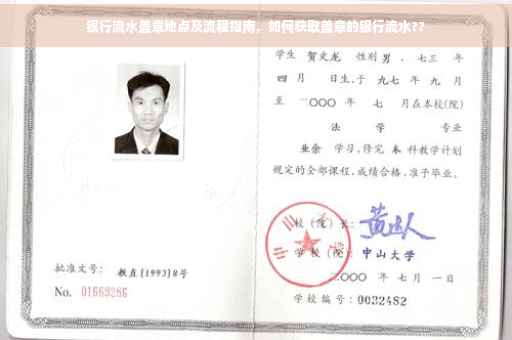 银行流水盖章地点及流程指南，如何获取盖章的银行流水??
学生 贺文龙 性别 男 ，七三 年
四 月 日生,于 九七 年 九 月
至 二〇〇〇 年 七 月在本校(院)
法 学 专业
业余 学习,修完 本 科教学计划
规定的全部课程,成绩合格,准予毕业。
校（院）长：
学校（院）： 中山大学
批准文号： 教直[1993]8号
二〇〇〇 年 七 月 一日
No. 01669286
学校编号：0032482